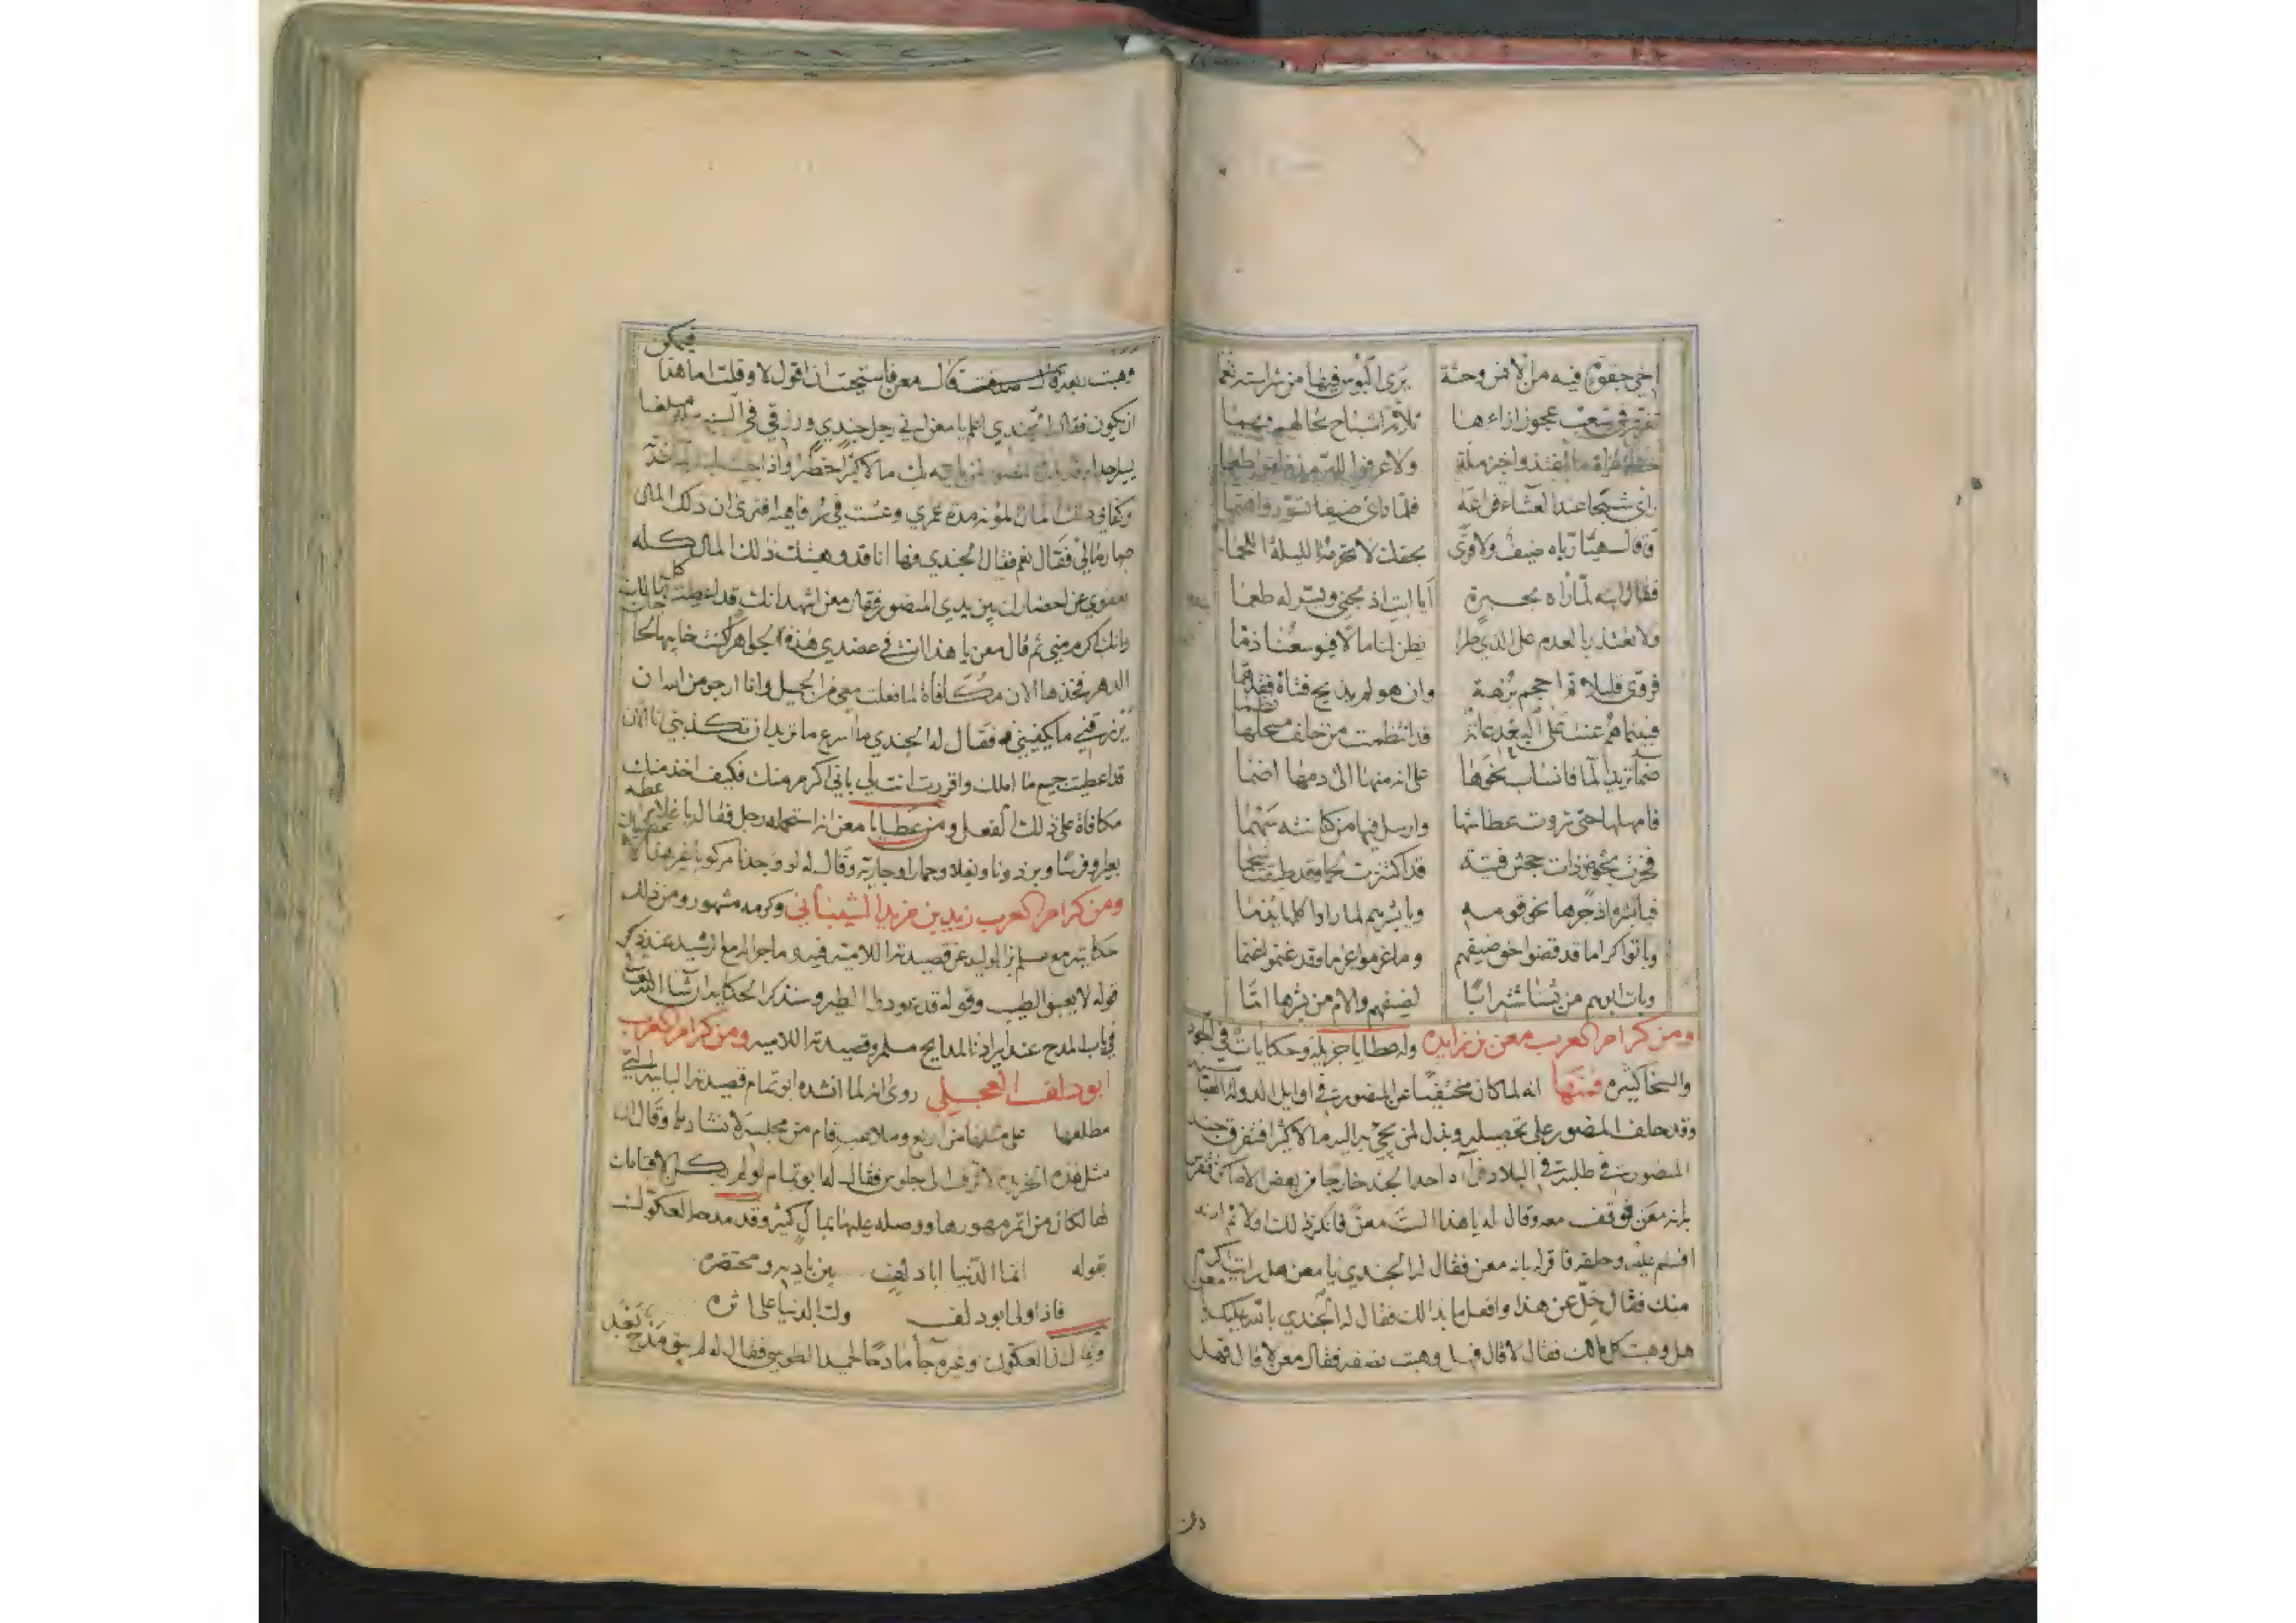 اخي جفوة فيه من الانس وحشة يرى البوس فيها من شراسته نعما
تفرد في شعب عجوز ازاءها ثلاثة اشباح تخالهم بهما
ولا عرفوا للبر مذ خلقوا طعما
راى شبحا عند العشاء فراعه فلما راى ضيفا تشور واهتما
وقال هيا رباه ضيف ولا قرى بحقك لا تحرمه الليلة اللحما
فقال ابنه لما راه بحيرة ايا ابت اذبحني ويسر له طعما
ولا تعتذر بالعدم على الذي طرا يظن لنا مالا فيوسعنا ذما
فروى قليلا ثم احجم برهة وان هو لم يذبح فتاه فقد هما
فبينما هم عنت على البعد عانة قد انتظمت من خلف مسحلها نظما
ظماء تريد الما فانساب نحوها على انه منها الى دمها اظما
فامهلها حتى تروت عطاشها وارسل فيها من كنانته سهما
فخرت نحوص ذات جحش فتية قد اكتنزت لحما وقد طبقت شحما
فيا بشره اذ جرها نحو قومه ويا بشرهم لما راوا كلمها يدما
وباتوا كراما قد قضوا حق ضيفهم وما غرموا غرما وقد غنموا غنما
وبات ابوهم من بشاشته ابا لضيفهم والام من بشرها اما
ومن كرام العرب معن بن زايده وله عطايا جزيلة وحكايات في الجود
والسخا كثيره فمنها انه لما كان مختفيا عن المنصور في اوايل الدولة
وقد حلف المنصور على تحصيله وبذل لمن يجئ به اليه مالا كثيرا فتفرق جند
المنصور في طلبه في البلاد فراه احد الجند خارجا من بعض الاماكن فتفرس
بانه معن فوقف معه وقال له يا هذا الست معن فانكر ذلك اولا ثم انه
اقسم عليه وحلفه فاقر له بانه معن فقال له الجندي يا معن هل رايت اكرم
منك فقال خل عن هذا وافعل ما بدا لك فقال له الجندي بالله عليك يا معن
هل وهبت كل مالك فقال لا قال فهل وهبت نصفه فقال معن لا قال فهل
وهبت ربعه قال معن فاستحيت ان اقول لا وقلت اما هذا فيمكن
ان يكون فقال الجندي اعلم يا معن اني رجل جندي ورزقي في السنة مبلغا
وكفاني ذلك المال لمؤنة مدة عمري وعشت في رفاهية افترى ان ذلك المال
صار مالي فقال نعم فقال الجندي فها انا قد وهبتك ذلك المال كله
بعفوي عن احضارك بين يدي المنصور فقال معن اشهد انك قد اعطيت كل مالك
وانك اكرم مني ثم قال معن يا هذا ان في عضدي هذه الجواهر كنت خابيها
الدهر فخذها الان مكافاة لما فعلت معي من الجميل وانا ارجو من الله ان
يرزقني ما يكفيني فقال له الجندي ما اسرع ما تريد ان تكذبني انا الان
قد اعطيت جميع ما املك واقررت انت لي باني اكرم منك فكيف اخذ منك
مكافاة على ذلك الفعل ومن عطايا معن انه استحمله رجل فقال يا غلام اعطه
بعيرا وفرسا وبرذونا وبغلا وحمارا وجارية وقال له لو وجدنا مركوبا غير هذا
ومن كرام العرب زيد بن مزيد الشيباني وكرمه مشهور ومن ذلك
حكايته مع مسلم بن الوليد عن قصيدته اللامية فيه وما جرا له مع الرشيد عند ذكر
قوله لا يعبق الطيب وقوله قد عود الطير وسنذكر الحكاية ان شا الله تعالى
في باب المدح عند ايرادنا المدايح مسلم وقصيدته اللاميه ومن كرام العرب
ابو دلف العجلي روى انه لما انشده ابو تمام قصيدته البائية التي
مطلعها على مثلها من اربع وملاعب قام من مجلسه لانشادها وقال ان
مثل هذه الخريدة لا تزف الى جلوس فقال له ابو تمام لو لم يكن الا قيامك
لها لكان من اتم مهورها ووصله عليها بمال كثير وقد مدحه العكوك
بقوله انما الدنيا ابا دلف بين باديه ومحتضره
فاذا ولى ابو دلف ولت الدنيا على اثره
وقال ان العكوك وغيره جا مادحا لحميد الطوسي فقال له لم يبق مدح بعد